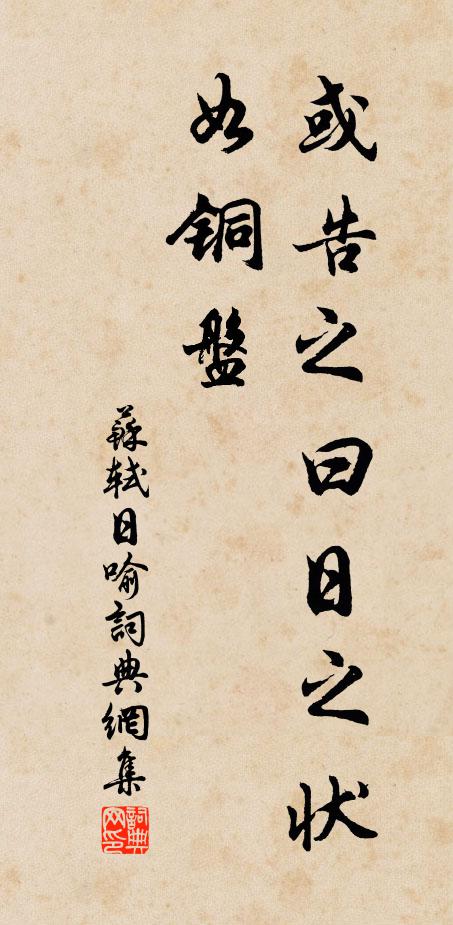 或告之曰日之状
如銅盤
蘇軾日喻詞典網集
詞典网印